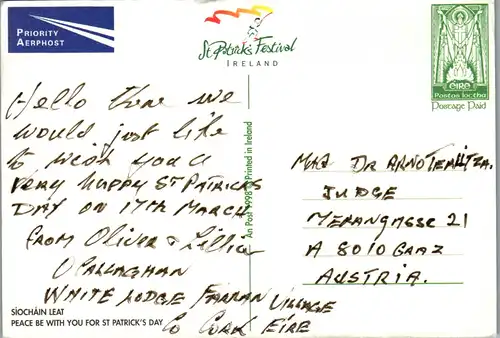 PRIORITY
AERPHOST
St Patrick's Festival
IRELAND
EIRE
Postas Íoctha
Postage Paid
Hello there we
would just like
to wish you a
very happy ST PATRICKS
DAY ON 17TH MARCH
FROM Oliver & Lillian
O CALLAGHAN
WHITE LODGE FARRAN VILLAGE
Co CORK EIRE
SÍOCHÁIN LEAT
PEACE BE WITH YOU FOR ST PATRICK'S DAY
An Post 1998 Printed in Ireland
DR ARNO
JUDGE
MERANGASSE 21
A 8010 GRAZ
AUSTRIA.